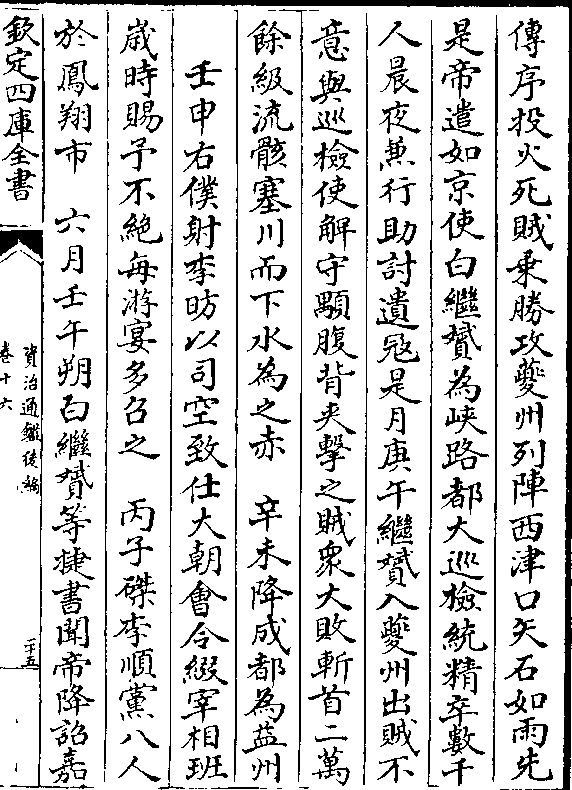 傳序投火死賊乗勝攻夔州列陣西津口矢石如雨先
是帝遣如京使白繼贇為峽路都大巡檢統精卒數千
人晨夜兼行助討遺冦是月庚午繼贇入夔州出賊不
意與巡檢使解守顒腹背夾擊之賊衆大敗斬首二萬
餘級流骸塞川而下水為之赤　辛未降成都為益州
壬申右僕射李昉以司空致仕大朝會令綴宰相班
歳時賜予不絶每游宴多召之　丙子磔李順黨八人
於鳳翔市　六月壬午朔白繼贇等捷書聞帝降詔嘉
欽定四庫全書
資治通鑑後編
卷十六
二十五